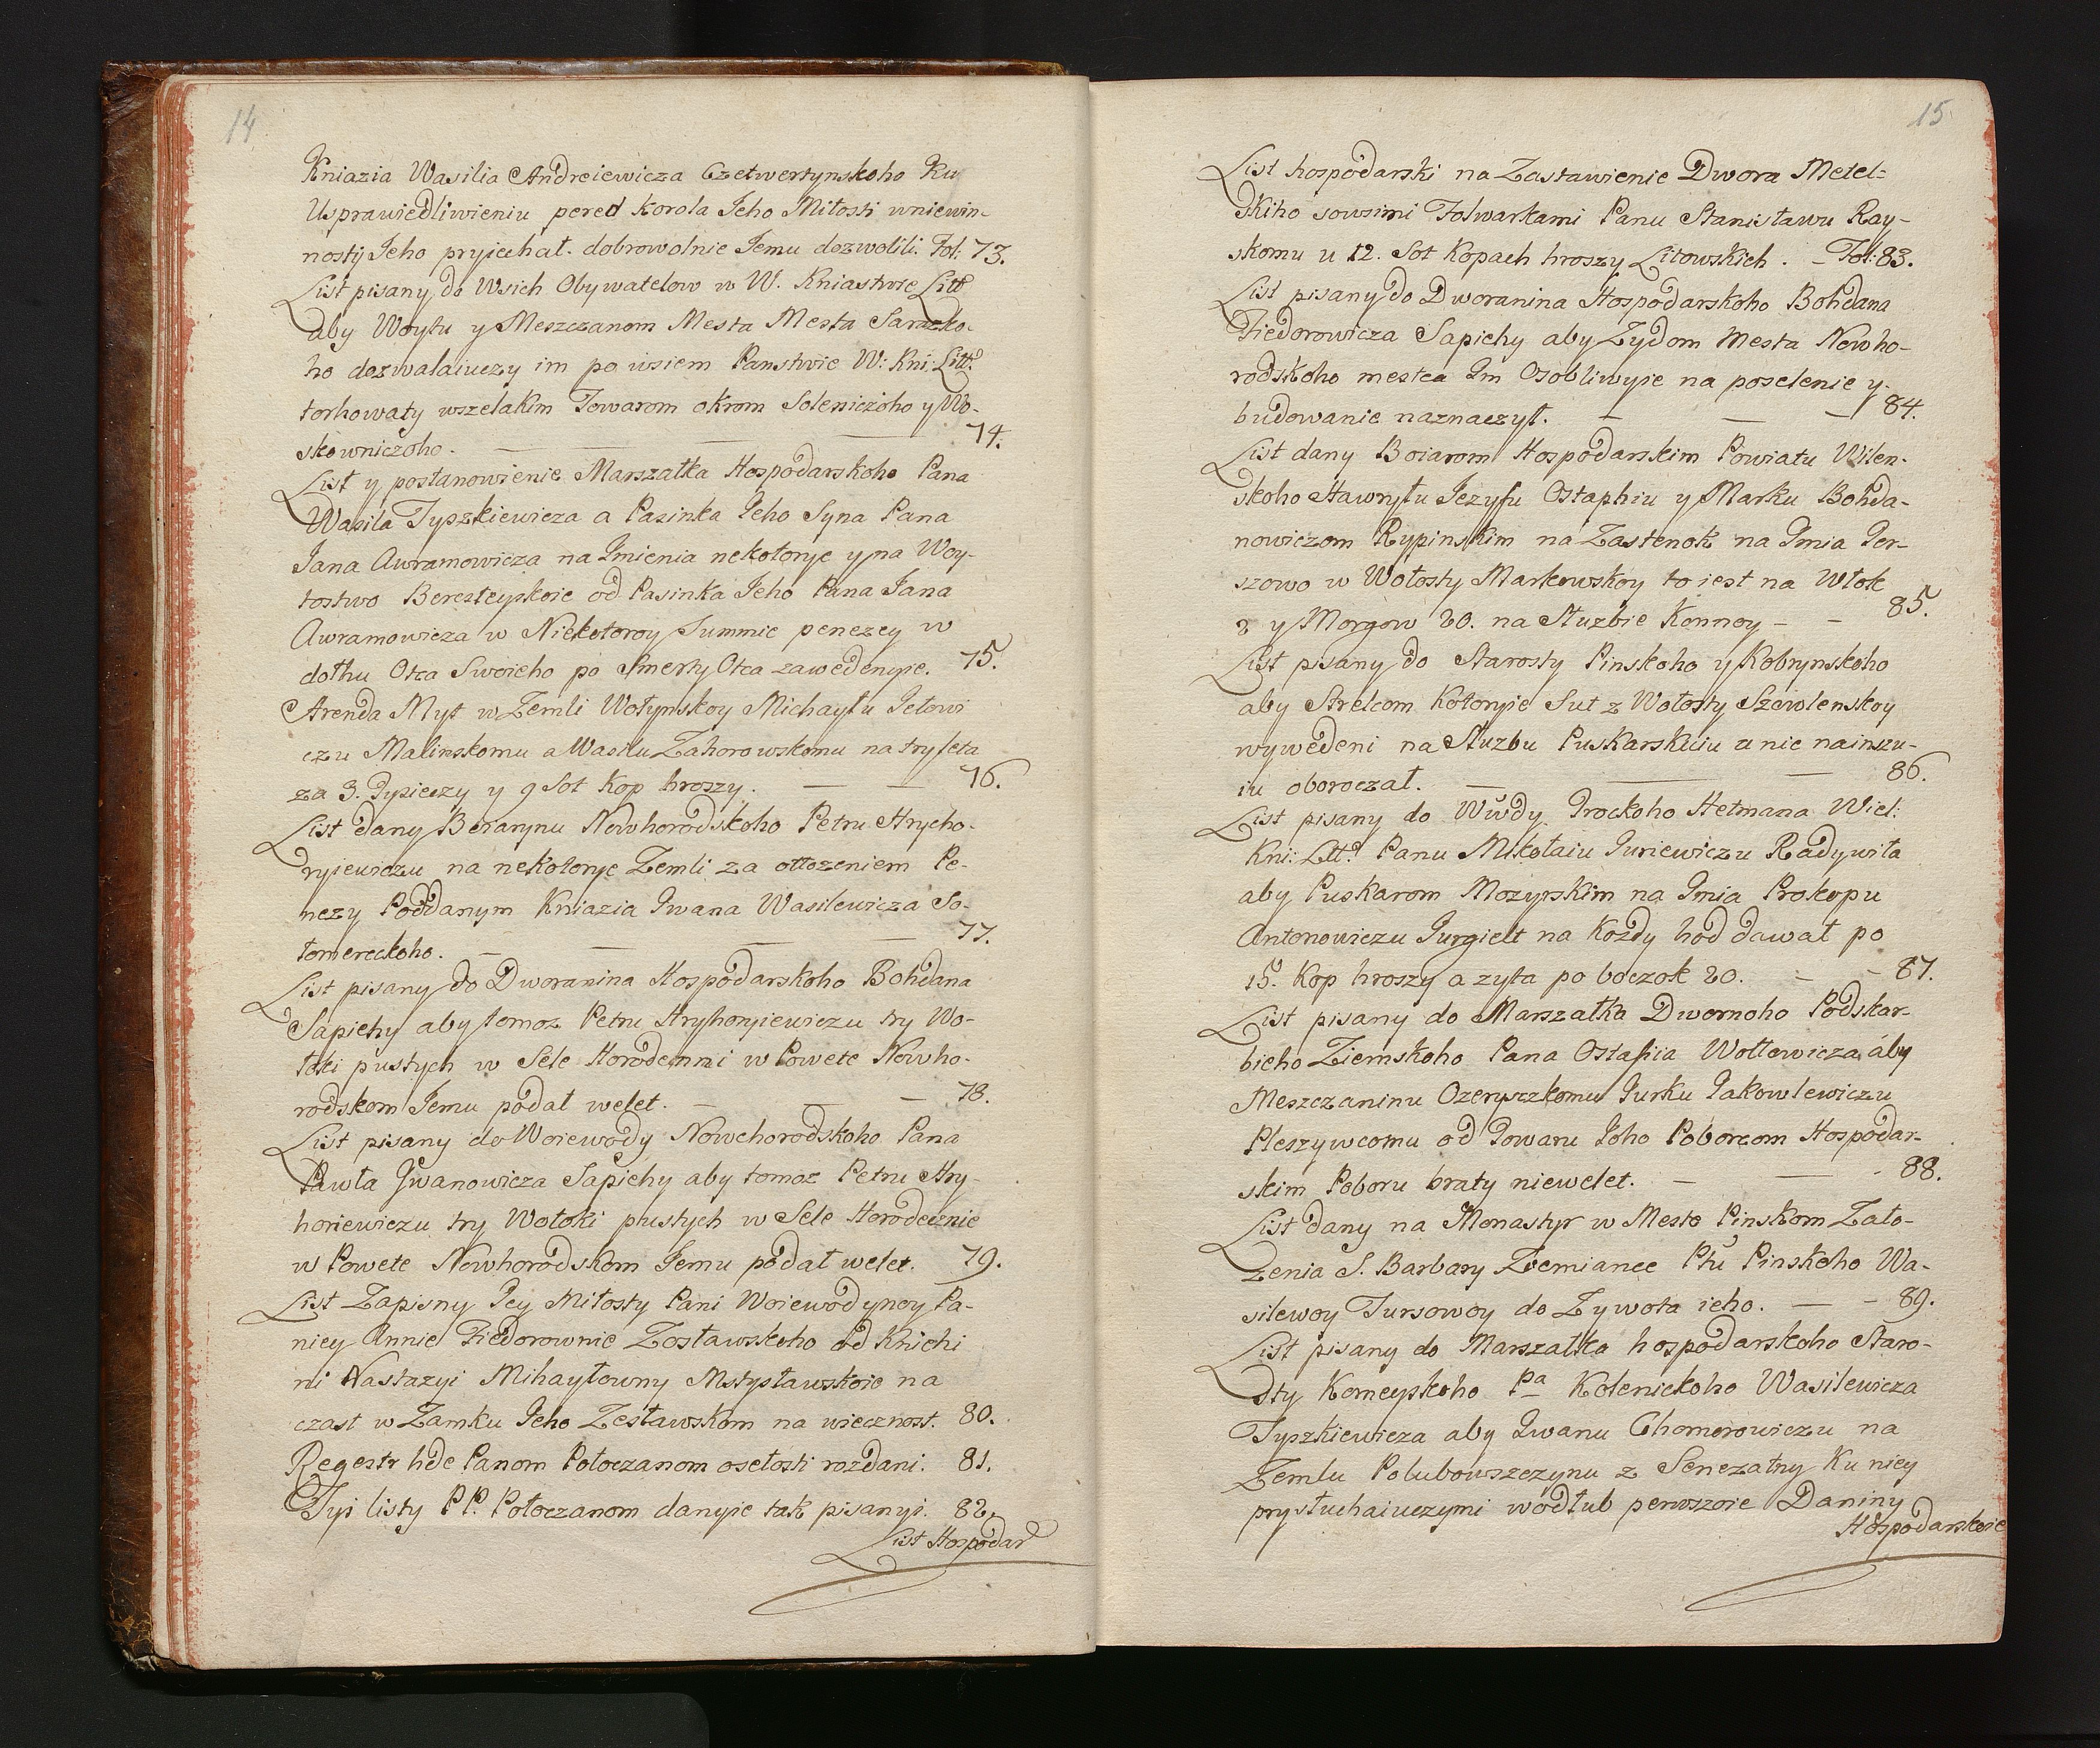 14
Kniazia Wasilia Andreiewicza Czetwertynskoho Ku
Usprawiedliwieniu pered Korola Jeho Miłosti wniewin-
nosty Jeho pryiechał. dobrowolnie Jemu dozwolili. Fol: 73.
List pisany do Wsich Obywatelow w W. Kniastwie Litt
aby Woytu y Meszczanom Mesta Mesta Saraszko-
ho dozwalaiuczy im po wsiem Panstwie W: Kni: Litt.
torhowaty wszelakim Towarom okrom Soleniczoho y Wo-
skowniczoho. 74.
List y postanowienie Marszałka Hospodarskoho Pana
Wasila Tyszkiewicza a Pasinka Jeho Syna Pana
Jana Awramowicza na Imienia nekotorye y na Woy-
tostwo Beresteyskoie od Pasinka Jeho Pana Jana
Awramowicza w Niekotoroy Summie penezey w
dołhu Otca Swoieho po Smerty Otca zawedenyie. 75.
Arenda Myt w Zemli Wołynskoy Michayłu Jełowi
czu Malinskomu a Wasilu Zahorowskomu na try leta
za 3. Tysieczy y 9 Sot Kop hroszy. 76.
List dany Bojarynu Nowhorodskoho Petru Hrycho-
ryiewiczu na nekotorye Zemli za otłozeniem Pe-
nezy Poddanym Kniazia Iwana Wasilewicza So-
łomereckoho. 77.
List pisany do Dworanina Hospodarskoho Bohdana
Sapiehy aby tomoz Petru Hryhoryiewiczu try Wo-
łoki pustych w Sele Horodeczni w Powete Nowho-
rodskom Jemu podał welet. 78.
List pisany do Woiewody Nowohorodskoho Pana
Pawła Iwanowicza Sapiehy aby tomoz Petru Hry-
horiewiczu try Wołoki pustych w Sele Horodecznie
w Powete Nowhorodskom Jemu podał welet. 79.
List Zapisny Jey Miłosty Pani Woiewodynoy Pa-
niey Annie Fiedorownie Zosławskoho od Kniehi
ni Nastazyi Mihayłowny Mstysławskoie na
czast w Zamku Jeho Zesławskom na wiecznost. 80.
Regestr hde Panom Połoczanom osełosti rozdani. 81.
Tyi listy PP. Połoczanom danyie tak pisanyi. 82.
List Hospodar
15
List hospodarski na Zastawienie Dwora Metel-
skiho sowsimi Folwarkami Panu Stanisławu Ray-
skomu u 12. Sot Kopach hroszy Litowskich. Fol: 83.
List pisany do Dworanina Hospodarskoho Bohdana
Fiedorowicza Sapiehy aby Zydom Mesta Nowho-
rodskoho mestca Im Osobliwyie na poselenie y
budowanie naznaczył. 84.
List dany Boiarom Hospodarskim Powiatu Wilen-
skoho Hawryłu Jezyfu Ostaphiu y Marku Bohda-
nowiczom Rypinskim na Zastenok na Imia Jer-
szowo w Wołosty Markowskoy to iest na Włok
2 y Morgow 20. na Słuzbie Konnoy 85.
List pisany do Starosty Pinskoho y Kobrynskoho
aby Strelcom Kotoryie Sut z Wołosty Szowlenskoy
wywedeni na Słuzbu Puskarskuiu a nie nainszu-
iu oboroczał. 86.
List pisany do Wwdy Trockoho Hetmana Wiel:
Kni: Litt. Panu Mikołaiu Juriewiczu Radywiła
aby Puskarom Mozyrskim na Imia Prokopu
Antonowiczu Jurgielt na Kozdy hod dawał po
15. Kop hroszy a zyta po boczok 20. 87.
List pisany do Marszałka Dwornoho Podskar-
bieho Ziemskoho Pana Ostafiia Wołłowicza, aby
Meszczaninu Ozeryszkomu Jurku Jakowlewiczu
Pleszywcomu od Towaru Joho Poborcom Hospodar-
skim Poboru braty niewelet. 88.
List dany na Monastyr w Meste Pinskom Zało-
zenia S. Barbary Ziemiance Płu Pinskoho Wa-
silewoy Tursowoy do Zywota ieho. 89.
List pisany do Marszałka hospodarskoho Staro-
sty Komeyskoho Pa Kolenickoho Wasilewicza
Tyszkiewicza aby Iwanu Chomorowiczu na
Zemlu Polubowszczynu z Senezatny Ku niey
prysłuchaiuczymi wodłub perwszoie Daniny
Hospodarskoie